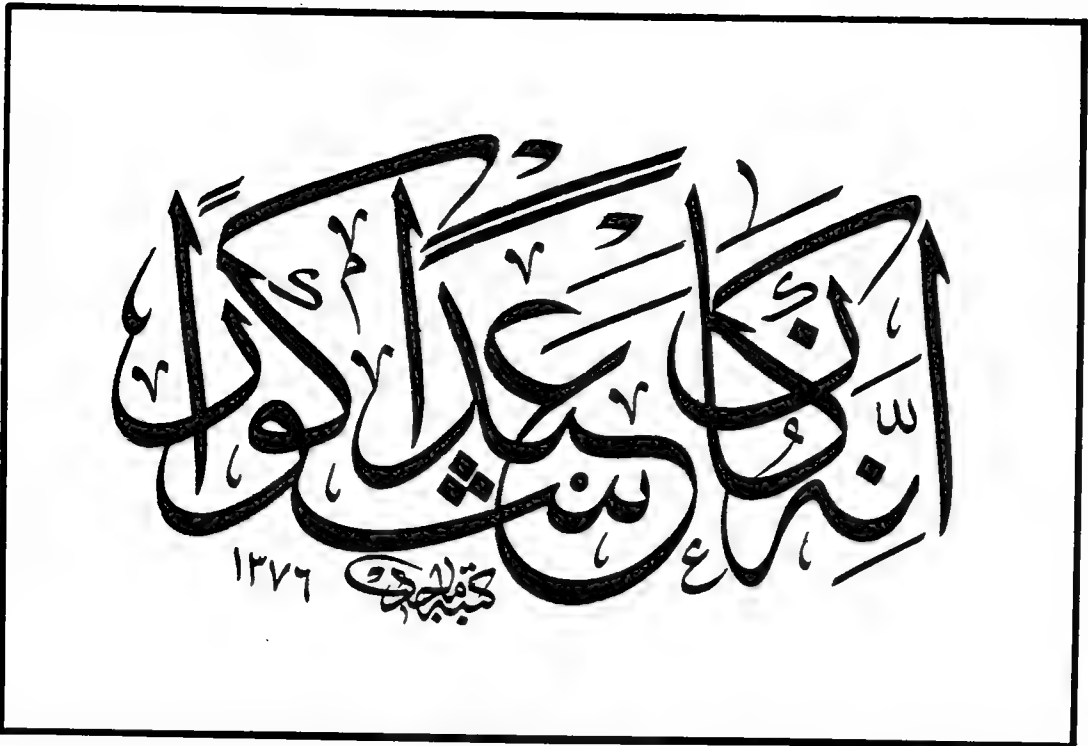 اِنَّهُ كَانَ عَبْدًا شَكُورًا
كتبه ماجد ١٣٧٦